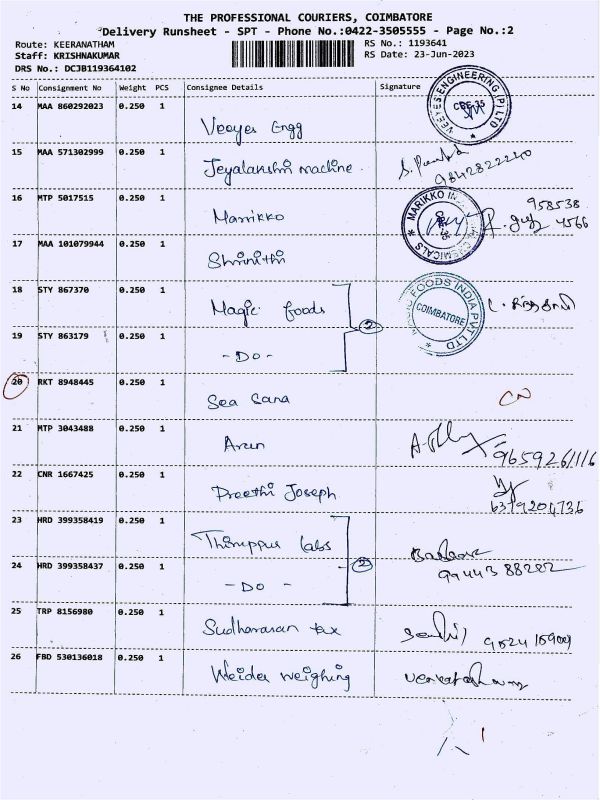 THE PROFESSIONAL COURIERS, COIMBATORE
Delivery Runsheet - SPT - Phone No.:0422-3505555 - Page No.:2
Route: KEERANATHAM
Staff: KRISHNAKUMAR
DRS No.: DCJB119364102
RS No.: 1193641
RS Date: 23-Jun-2023
S No Consignment No Weight PCS Consignee Details Signature
14 MAA 860292023 0.250 1 Veeyes Engg
VEEYES ENGINEERING (P) LTD
CBE-35
15 MAA 571302999 0.250 1 Jeyalakshmi machine
9842822240
16 MTP 5017515 0.250 1 Marikko
MARIKKO CHEMICALS
958538
4566
17 MAA 101079944 0.250 1 Shrinithi
18 STY 867370 0.250 1 Magic foods
2
MAGIC FOODS INDIA PVT LTD
COIMBATORE
19 STY 863179 0.250 1 - Do -
20 RKT 8948445 0.250 1 Sea Sana CN
21 MTP 3043488 0.250 1 Arun
9659261116
22 CNR 1667425 0.250 1 Preethi Joseph
6379204736
23 HRD 399358419 0.250 1 Thiruppur labs
2
24 HRD 399358437 0.250 1 - Do -
99443 88202
25 TRP 8156980 0.250 1 Sudharasan tax
26 FBD 530136018 0.250 1 Weider weighing